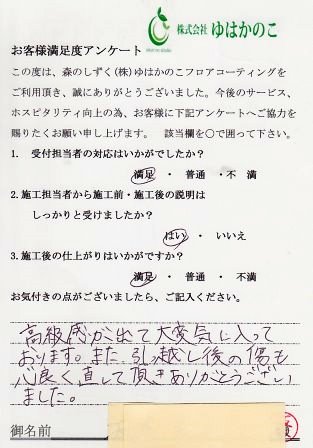 株式会社 ゆはかのこ
お客様満足度アンケート
この度は、森のしずく(株)ゆはかのこフロアコーティングを
ご利用頂き、誠にありがとうございました。今後のサービス、
ホスピタリティ向上の為、お客様に下記アンケートへご協力を
賜りたくお願い申し上げます。 該当欄を○で囲って下さい。
1. 受付担当者の対応はいかがでしたか?
満足 ・ 普通 ・不 満
2.施工担当者から施工前・施工後の説明は
しっかりと受けましたか?
はい ・ いいえ
3.施工後の仕上がりはいかがですか?
満足 ・ 普通 ・ 不満
お気付きの点がございましたら、ご記入ください。
高級感が出て大変気に入って
おります。また、引っ越し後の傷も
心良く直して頂きありがとうござい
ました。
御名前